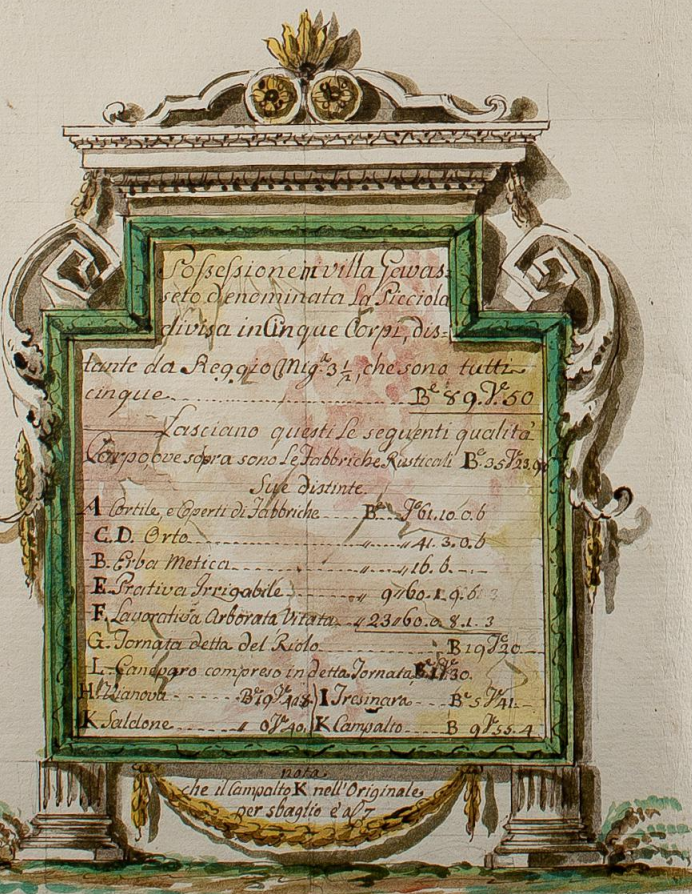 Possessione in villa Gavas:
seto denominata La Picciola
divisa in Cinque Corpi, dis-
tante da Reggio Mig.a 3 1/2, che sono tutti
cinque B.e 89. P.e 50
Lasciano questi Le seguenti qualità
Corpo, ove sopra sono Le Fabbriche Rusticali B.e 35 P.e 23.
Sue distinte.
A Cortile, e Coperti di Fabbriche B.e P.e 61. 10. 0. 6
C. D. Orto " " 41. 3. 0. 6
B. Erba Metica " " 16. 6.
E. Prativa Irrigabile 9 " 60. 1. 9. 6
F. Lavorativa Arborata Vitata " 23 " 60. 0. 8. 1. 3
G. Tornata detta del Riolo B 19 P.e 20
L. Caneparo compreso in detta Tornata B.e 1 P.e 30.
H B.e 19 P.e 418 I Tresinara B.e 5 P.e 41.
K Saldone " 0 P.e 40. K Campalto B 9 P.e 55. 4
nota
che il Campalto K nell'Originale
per sbaglio è al 7